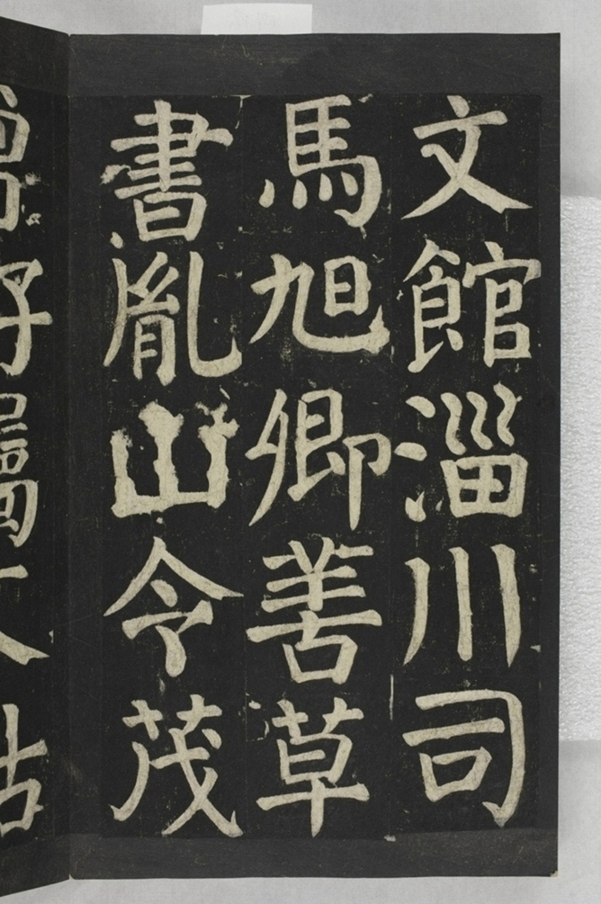 文館淄川司
馬旭卿善草
書胤山令茂